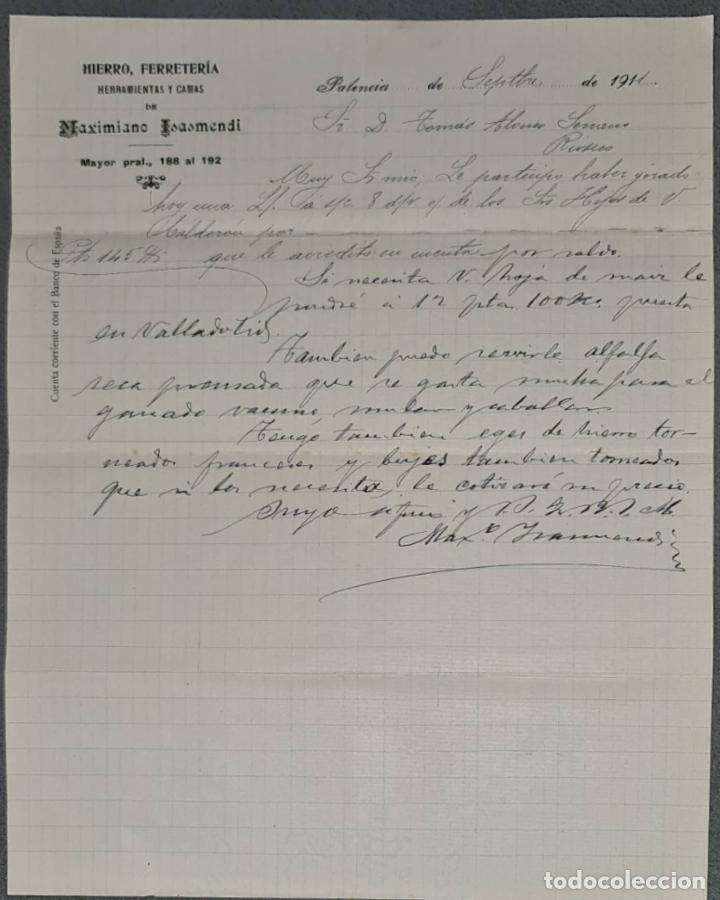 HIERRO, FERRETERÍA
HERRAMIENTAS Y CAMAS
DE
Maximiano Isasmendi
Mayor pral., 188 al 192
Cuenta corriente con el Banco de España
Palencia de Septbre de 1911
Sr D Tomás Alonso
Rioseco
Muy Sr mio; Le participo haber girado
hoy una L/. á s/c 8 d/v c/ de los Srs Hijos de V.
Calderón por
Pts 145 que le acredito en cuenta por saldo.
Si necesita V. hoja de maiz le
pondré á 12 ptas 100 Ks. puesta
en Valladolid.
Tambien puedo servirle alfalfa
seca prensada que se gasta mucha para el
ganado vacuno, mular y caballar.
Tengo tambien eges de hierro tor-
neados franceses y bujes tambien torneados
que si los necesita, le cotizaré su precio.
Suyo afmo y S. S. Q. B. S. M.
Maxo. Isasmendi
todocoleccion.net